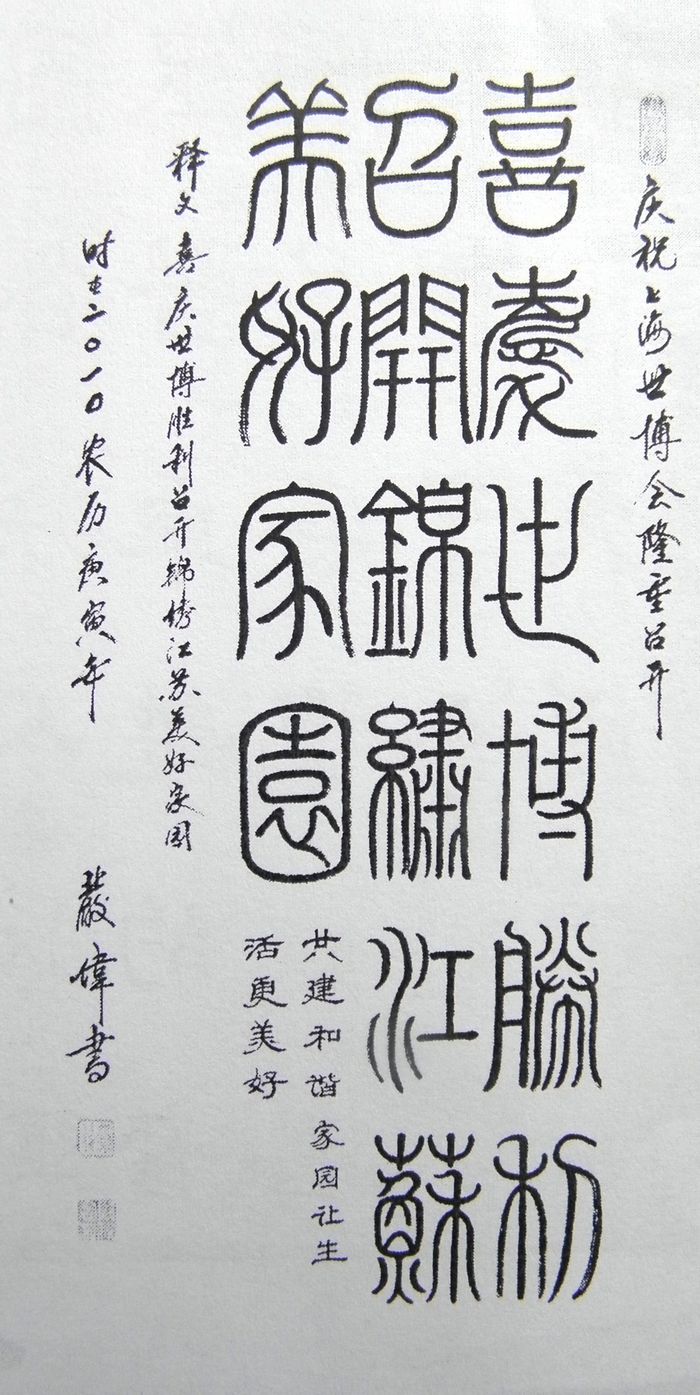 庆祝上海世博会隆重召开
喜慶世博勝利
召開錦繡江蘇
美好家園
共建和谐家园让生
活更美好
释文喜庆世博胜利召开锦绣江苏美好家园
时在二〇一〇农历庚寅年
嚴偉書